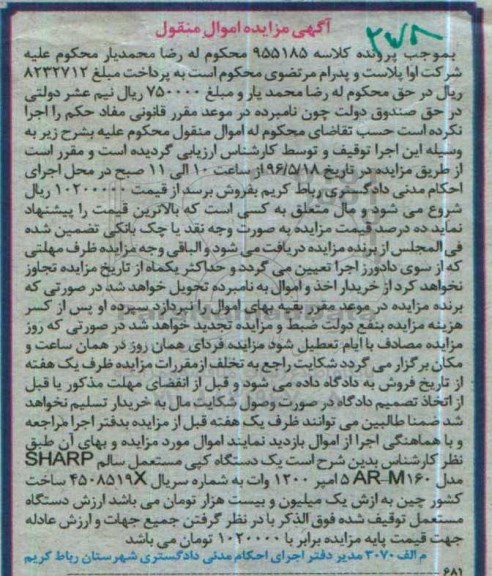 آگهی مزایده اموال منقول
بموجب پرونده کلاسه ۹۵۵۱۸۵ محکوم له رضا محمدیار محکوم علیه
شرکت آوا پلاست و پدرام مرتضوی محکوم است به پرداخت مبلغ ۸۲۳۲۷۱۲
ریال در حق محکوم له رضا محمد یار و مبلغ ۷۵۰۰۰۰ ریال نیم عشر دولتی
در حق صندوق دولت چون نامبرده در موعد مقرر قانونی مفاد حکم را اجرا
نکرده است حسب تقاضای محکوم له اموال منقول محکوم علیه بشرح زیر به
وسیله این اجرا توقیف و توسط کارشناس ارزیابی گردیده است و مقرر است
از طریق مزایده در تاریخ ۹۶/۵/۱۸ از ساعت ۱۰ الی ۱۱ صبح در محل اجرای
احکام مدنی دادگستری رباط کریم بفروش برسد از قیمت ۱۰۲۰۰۰۰۰ ریال
شروع می شود و مال متعلق به کسی است که بالاترین قیمت را پیشنهاد
نماید ده درصد قیمت مزایده به صورت وجه نقد یا چک بانکی تضمین شده
فی المجلس از برنده مزایده دریافت می شود و الباقی وجه مزایده ظرف مهلتی
که از سوی دادورز اجرا تعیین می گردد و حداکثر یکماه از تاریخ مزایده تجاوز
نخواهد کرد از خریدار اخذ و اموال به نامبرده تحویل خواهد شد در صورتی که
برنده مزایده در موعد مقرر بقیه بهای اموال را نپردازد سپرده او پس از کسر
هزینه مزایده بنفع دولت ضبط و مزایده تجدید خواهد شد در صورتی که روز
مزایده مصادف با ایام تعطیل شود مزایده فردای همان روز در همان ساعت و
مکان برگزار می گردد شکایت راجع به تخلف از مقررات مزایده ظرف یک هفته
از تاریخ فروش به دادگاه داده می شود و قبل از انقضای مهلت مذکور یا قبل
از اتخاذ تصمیم دادگاه در صورت وصول شکایت مال به خریدار تسلیم نخواهد
شد ضمنا طالبین می توانند ظرف یک هفته قبل از مزایده بدفتر اجرا مراجعه
و با هماهنگی اجرا از اموال بازدید نمایند اموال مورد مزایده و بهای آن طبق
نظر کارشناس بدین شرح است یک دستگاه کپی مستعمل سالم SHARP
مدل AR-M۱۶۰ ۵ امپر ۱۲۰۰ وات به شماره سریال ۴۵۰۸۵۱۹X ساخت
کشور چین به ارزش یک میلیون و بیست هزار تومان می باشد ارزش دستگاه
مستعمل توقیف شده فوق الذکر با در نظر گرفتن جمیع جهات و ارزش عادله
جهت قیمت پایه مزایده برابر با ۱۰۲۰۰۰۰ تومان می باشد
م الف ۳۰۷۰ مدیر دفتر اجرای احکام مدنی دادگستری شهرستان رباط کریم
۶۸۱